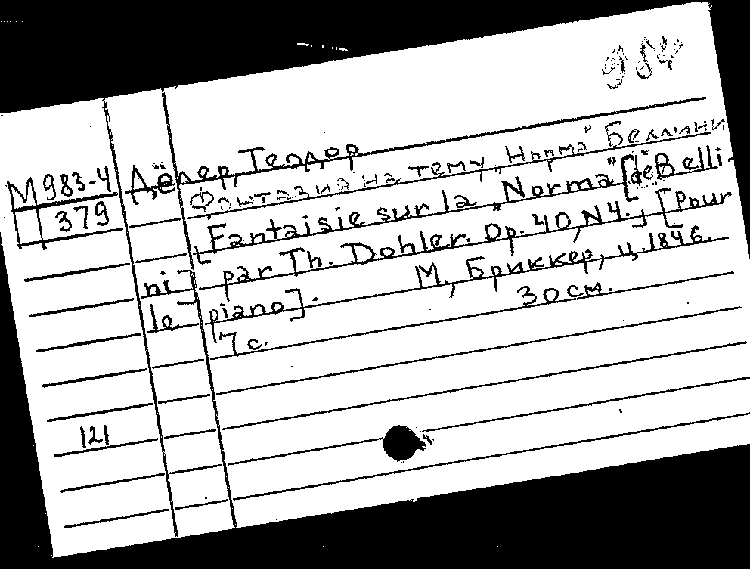 984
М 983-4
379
Дёлер, Теодор
Фантазия на тему „Норма" Беллини
[Fantaisie sur la „Norma" [de Belli-
ni] par Th. Dohler. Op. 40, N4.] [Pour
le piano]. М., Бриккер, ц. 1846.
7 с. 30 см.
121